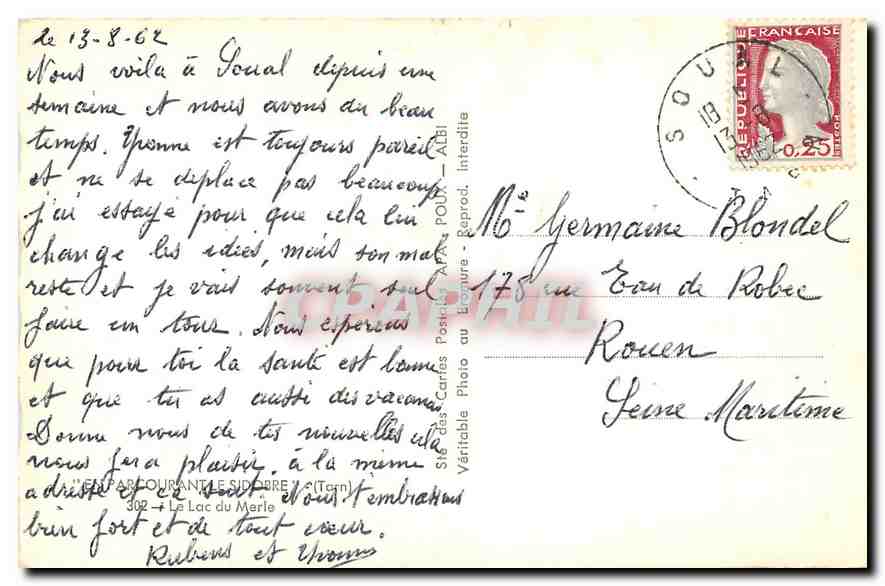 le 13-8-62
Nous voila à Soual depuis une
semaine et nous avons du beau
temps. Yvonne est toujours pareil
et ne se deplace pas beaucoup
j'ai essayé pour que cela lui
change les idées, mais son mal
reste et je vais souvent seul
faire un tour. Nous esperons
que pour toi la santé est bonne
et que tu as aussi des vacances
Donne nous de tes nouvelles cela
nous fera plaisir. à la même
adresse et ce sont. Nous t'embrassons
bien fort et de tout cœur.
Rubens et Yvonne
"EN PARCOURANT LE SIDOBRE" (Tarn)
302 - Le Lac du Merle
Sté des Cartes Postales APA - POUX - ALBI
Véritable Photo au Bromure - Reprod. Interdite
CPAPHIL
REPUBLIQUE FRANCAISE
POSTES
0,25
SOUAL
18 H
13-8
1962
Mme Germaine Blondel
178 rue Eau de Robec
Rouen
Seine Maritime